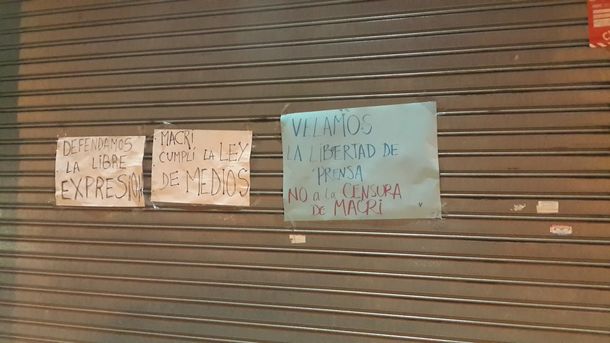 DEFENDAMOS
LA LIBRE
EXPRESIÓN
MACRI
CUMPLÍ LA LEY
DE MEDIOS
VELAMOS
LA LIBERTAD DE
PRENSA
NO a la CENSURA
DE MACRI